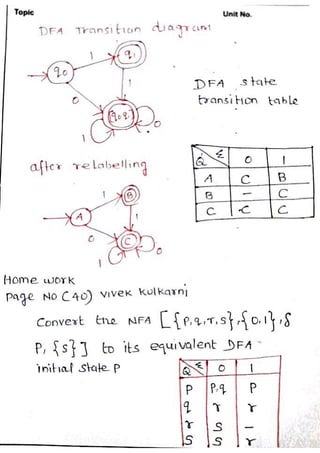 Topic
Unit No.
DFA Transition diagram
q0 1 q1
0 1
q0q1 0
1
DFA state
transition table
Q Σ 0 1
A C B
B – C
C C C
after relabelling
A 1 B
0 1
C 0
1
Home work
Page NO (40) vivek kulkarni
Convert the NFA [{P,q,r,s},{0,1},δ
P, {s}] to its equivalent DFA
initial state P
Q Σ 0 1
P P,q P
q r r
r S –
S S r